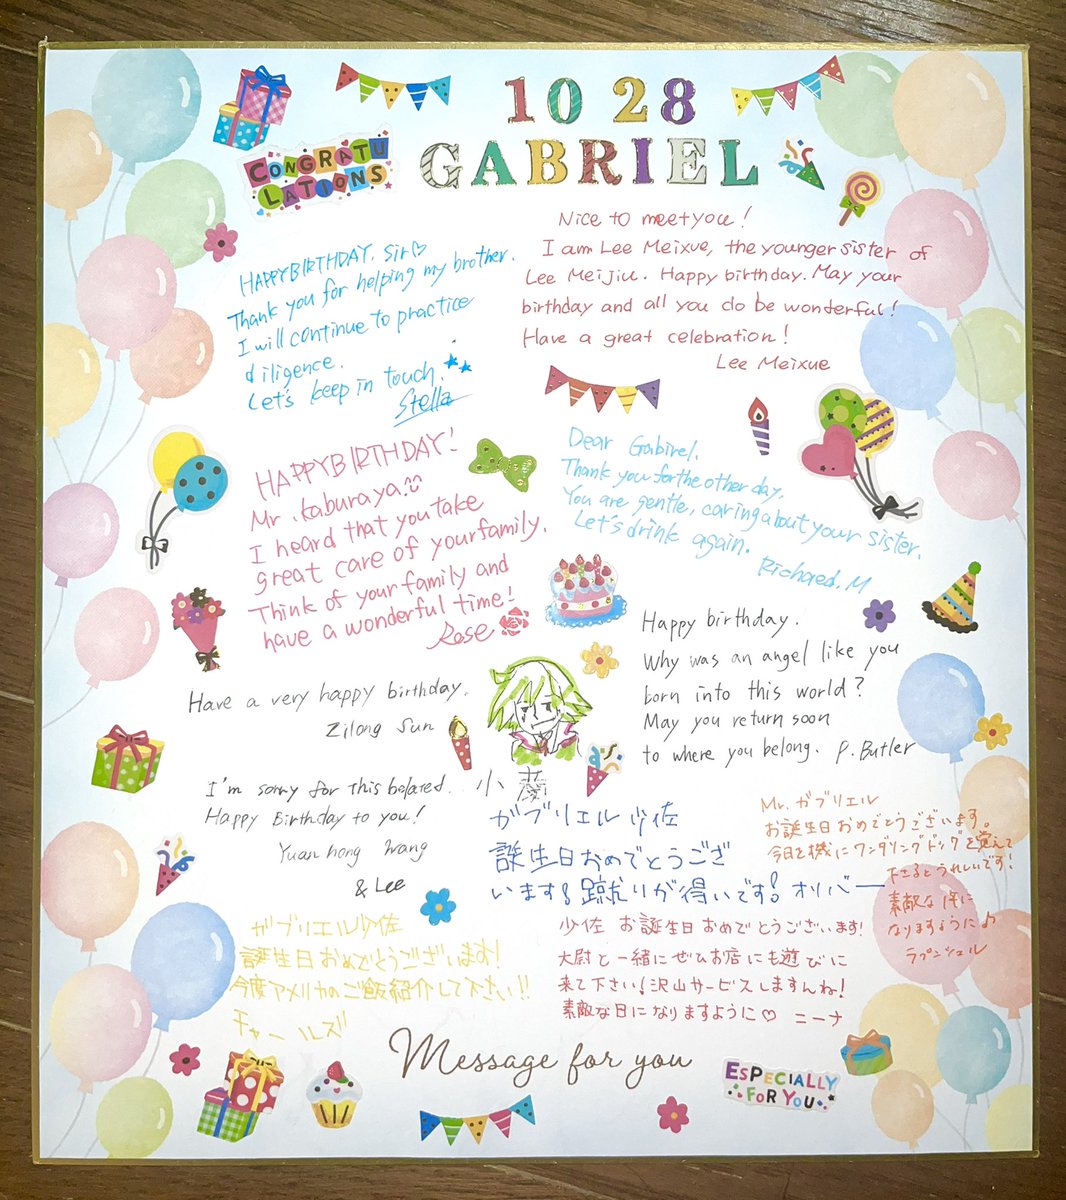 10 28
GABRIEL
CONGRATU
LATIONS
HAPPY BIRTHDAY. Sir♡
Thank you for helping my brother.
I will continue to practice
diligence.
Let's keep in touch.
Stella
Nice to meet you!
I am Lee Meixue, the younger sister of
Lee Meijiu. Happy birthday. May your
birthday and all you do be wonderful!
Have a great celebration!
Lee Meixue
HAPPY BIRTHDAY!
Mr. Kaburaya.
I heard that you take
great care of your family.
Think of your family and
have a wonderful time!
Rose
Dear Gabirel.
Thank you for the other day.
You are gentle, caring about your sister.
Let's drink again.
Richared. M
Have a very happy birthday.
Zilong Sun
Happy birthday.
Why was an angel like you
born into this world?
May you return soon
to where you belong. P. Butler
I'm sorry for this belated.
Happy Birthday to you!
Yuanhong Wang
& Lee
小
ガブリエル少佐
誕生日おめでとうござ
います!蹴りが得いです! オリバー
Mr. ガブリエル
お誕生日おめでとうございます。
今日を機にワンダリングドッグを覚えて
下さるとうれしいです!
素敵な1年に
なりますように♪
ラプンシェル
ガブリエル少佐
誕生日おめでとうございます!
今度アメリカのご飯紹介して下さい!!
チャールズ
少佐 お誕生日おめでとうございます!
大尉と一緒にぜひお店にも遊びに
来て下さい!沢山サービスしますんね!
素敵な日になりますように♡ ニーナ
Message for you
ESPECIALLY
FOR YOU